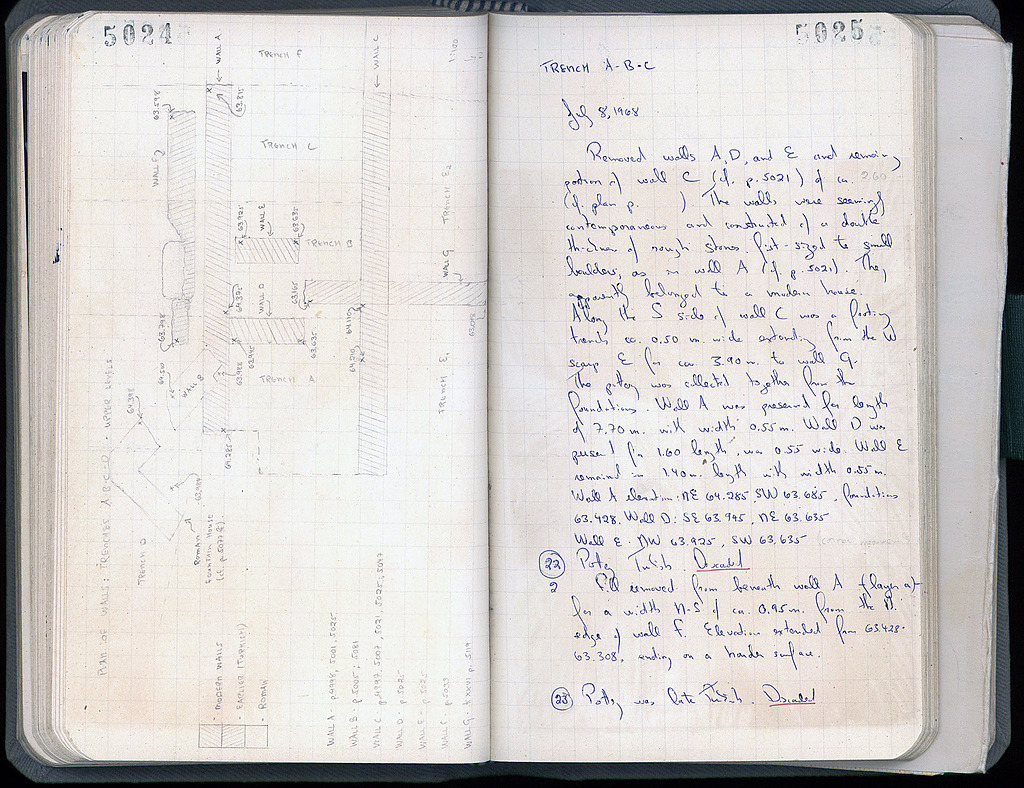 5024
PLAN OF WALLS: TRENCHES A-B-C-D - UPPER LEVELS
WALL A
TRENCH F
WALL C
1:100
63.598
63.815
WALL F
TRENCH C
TRENCH E2
63.925
WALL E
63.635
TRENCH B
WALL G
64.375
WALL D
63.165
63.798
64.110
63.635
63.945
63.988
64.210
63.078
TRENCH E1
64.510
WALL B
TRENCH A
64.398
64.285
63.984
TRENCH D
ROMAN
FOUNTAIN HOUSE
(cf. p. 5077 ff.)
- MODERN WALLS
- EARLIER (TURKISH)
- ROMAN
WALL A - p. 4998, 5001, 5025
WALL B - p. 5005; 5081
WALL C - p. 4997, 5007, 5021, 5025, 5047
WALL D - p. 5025
WALL E - p. 5025
WALL F - p. 5033
WALL G - K XXVI p. 5119
5025
TRENCH A-B-C
July 8, 1968
Removed walls A, D, and E and remaining
portion of wall C (cf. p. 5021) of ca. 2.60
(cf. plan p. ) The walls were seemingly
contemporaneous and constructed of a double
thickness of rough stones fist-sized to small
boulders, as in wall A (cf. p. 5021). They
apparently belonged to a modern house.
Along the S side of wall C was a footing
trench ca. 0.50 m. wide extending from the W
scarp E for ca. 3.90 m. to wall G.
The pottery was collected together from the
foundations. Wall A was preserved for length
of 7.70 m. with width 0.55 m. Wall D was
preserved for 1.60 length, was 0.55 wide. Wall E
remained in 1.40 m. length with width 0.55 m.
Wall A elevation: NE 64.285, SW 63.685, foundations
63.428. Wall D: SE 63.945, NE 63.635
Wall E: NW 63.925, SW 63.635
22 Pottery Turkish. Discarded
Fill removed from beneath wall A (layer 2)
for a width N-S of ca. 0.95 m. from the N.
edge of wall F. Elevation extended from 63.428-
63.308, ending on a harder surface.
23 Pottery was late Turkish. Discarded